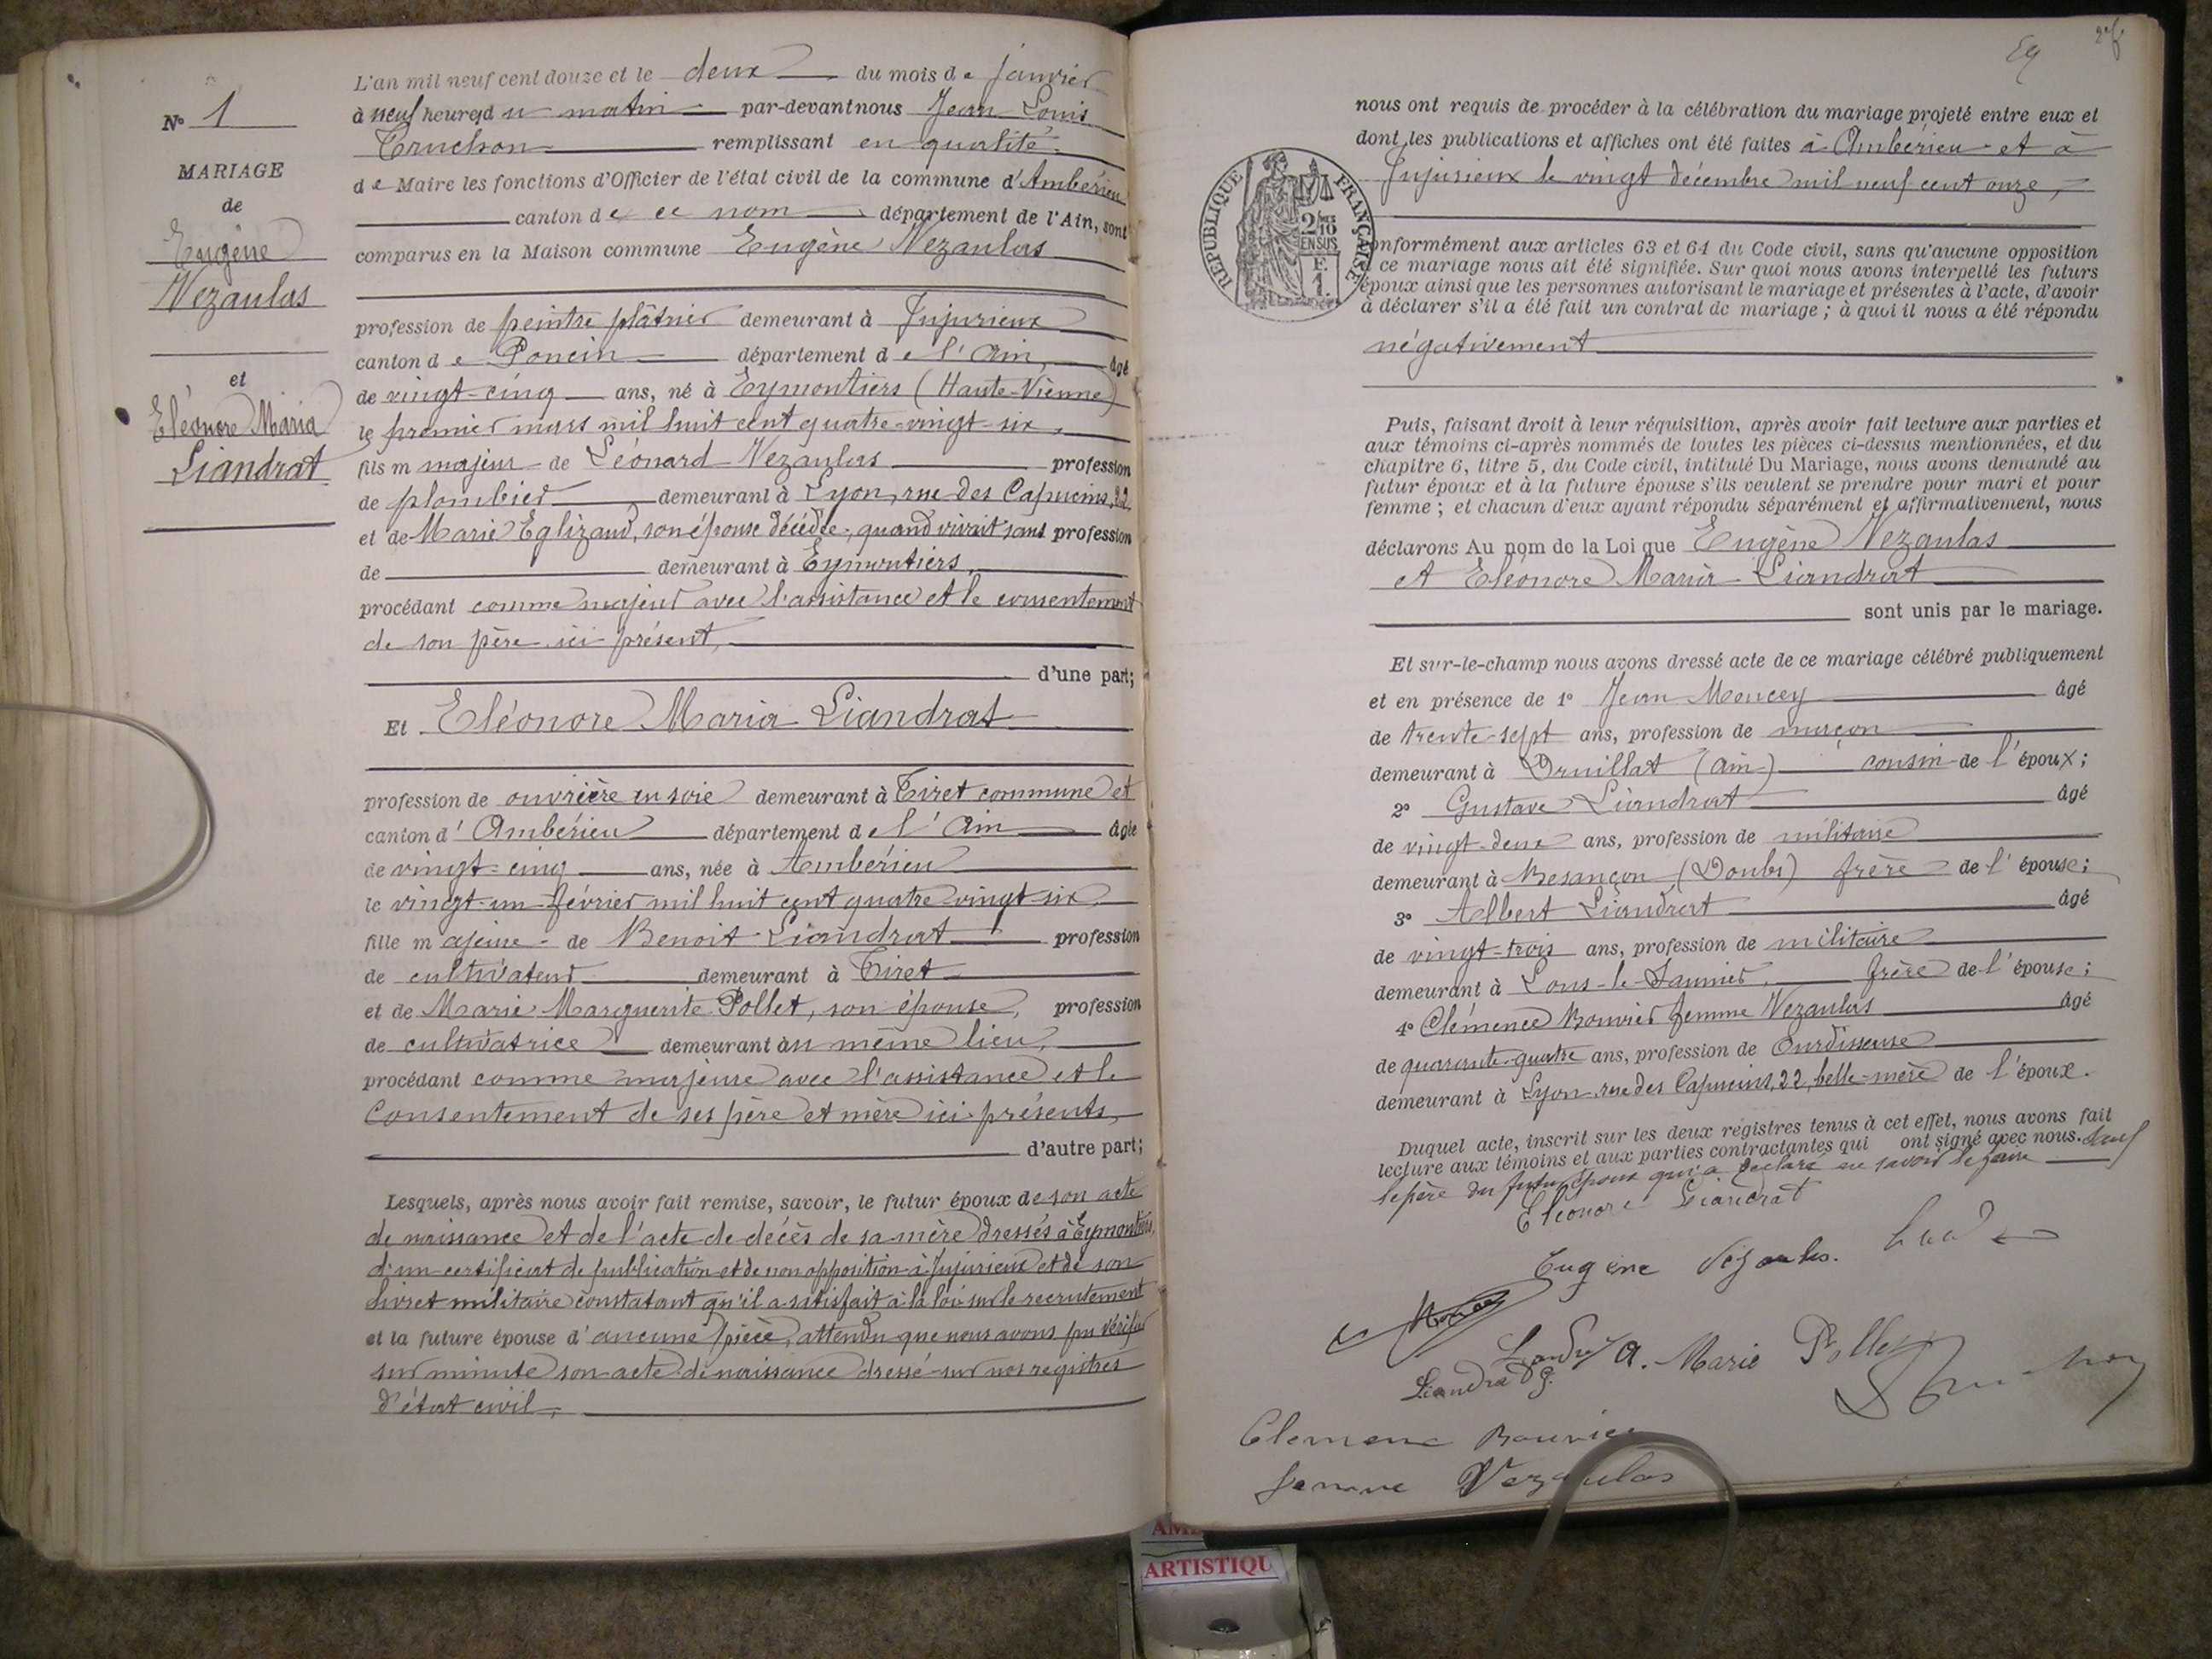 N° 1
MARIAGE
de
Eugène
Vezaulas
et
Eléonore Maria
Liandrat
L'an mil neuf cent douze et le deux du mois de janvier
à neuf heures du matin par-devant nous Jean Louis
Truchon remplissant en qualité
de Maire les fonctions d'Officier de l'état civil de la commune d'Ambérieu
canton de ce nom département de l'Ain, sont
comparus en la Maison commune Eugène Vezaulas
profession de peintre plâtrier demeurant à Jujurieux
canton de Poncin département de l'Ain, âgé
de vingt-cinq ans, né à Eymoutiers (Haute-Vienne)
le premier mars mil huit cent quatre-vingt-six,
fils majeur de Léonard Vezaulas profession
de plombier demeurant à Lyon, rue des Capucins, 22
et de Marie Eglizaud, son épouse décédée, quand vivait sans profession
de demeurant à Eymoutiers,
procédant comme majeur avec l'assistance et le consentement
de son père ici présent,
d'une part;
Et Eléonore Maria Liandrat
profession de ouvrière en soie demeurant à Tiret commune et
canton d'Ambérieu département de l'Ain âgée
de vingt-cinq ans, née à Ambérieu
le vingt-un février mil huit cent quatre vingt-six,
fille majeure de Benoit Liandrat profession
de cultivateur demeurant à Tiret
et de Marie Marguerite Pollet, son épouse, profession
de cultivatrice demeurant au même lieu,
procédant comme majeure avec l'assistance et le
consentement de ses père et mère ici présents,
d'autre part;
Lesquels, après nous avoir fait remise, savoir, le futur époux de son acte
de naissance et de l'acte de décès de sa mère dressés à Eymoutiers,
d'un certificat de publication et de non opposition à Jujurieux et de son
livret militaire constatant qu'il a satisfait à la loi sur le recrutement
et la future épouse d'aucune pièce, attendu que nous avons pu vérifier
sur minute son acte de naissance dressé sur nos registres
d'état civil,
59
nous ont requis de procéder à la célébration du mariage projeté entre eux et
dont les publications et affiches ont été faites à Ambérieu et à
Jujurieux le vingt décembre mil neuf cent onze,
RÉPUBLIQUE FRANÇAISE
2/10
EN SUS
F.
1.
conformément aux articles 63 et 64 du Code civil, sans qu'aucune opposition
à ce mariage nous ait été signifiée. Sur quoi nous avons interpellé les futurs
époux ainsi que les personnes autorisant le mariage et présentes à l'acte, d'avoir
à déclarer s'il a été fait un contrat de mariage; à quoi il nous a été répondu
négativement
Puis, faisant droit à leur réquisition, après avoir fait lecture aux parties et
aux témoins ci-après nommés de toutes les pièces ci-dessus mentionnées, et du
chapitre 6, titre 5, du Code civil, intitulé Du Mariage, nous avons demandé au
futur époux et à la future épouse s'ils veulent se prendre pour mari et pour
femme; et chacun d'eux ayant répondu séparément et affirmativement, nous
déclarons Au nom de la Loi que Eugène Vezaulas
et Eléonore Maria Liandrat
sont unis par le mariage.
Et sur-le-champ nous avons dressé acte de ce mariage célébré publiquement
et en présence de 1° Jean Moncey âgé
de trente-sept ans, profession de maçon
demeurant à Druillat (Ain) cousin de l'époux;
2° Gustave Liandrat âgé
de vingt-deux ans, profession de militaire
demeurant à Besançon (Doubs) frère de l'épouse;
3° Albert Liandrat âgé
de vingt-trois ans, profession de militaire
demeurant à Lons-le-Saunier, frère de l'épouse;
4° Clémence Bouvier femme Vezaulas âgé
de quarante-quatre ans, profession de Ourdisseuse
demeurant à Lyon rue des Capucins, 22, belle-mère de l'époux.
Duquel acte, inscrit sur les deux régistres tenus à cet effet, nous avons fait
lecture aux témoins et aux parties contractantes qui ont signé avec nous. Sauf
le père du futur époux qui a déclaré ne savoir le faire
Eléonore Liandrat
Eugène Vezaulas.
Moncey
Liandrat A. Marie Pollet
Liandrat G.
Clemence Bouvier
femme Vezaulas
ARTISTIQU